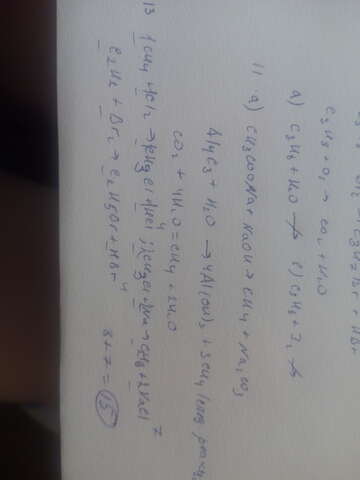 C3H7Br + HBr
C3H8 + O2 → CO2 + H2O
a) C3H8 + H2O ↛ б) C3H8 + I2 ↛
11. a) CH3COONa + NaOH → CH4 + Na2CO3
Al4C3 + H2O → 4Al(OH)3 + 3CH4
CO2 + 4H2O = CH4 + 2H2O
13 1CH4 + Cl2 → CH3Cl + HCl; 2CH3Cl + 2Na → C2H6 + 2NaCl
4 7
C2H6 + Br2 → C2H5Br + HBr 4 8+7=15